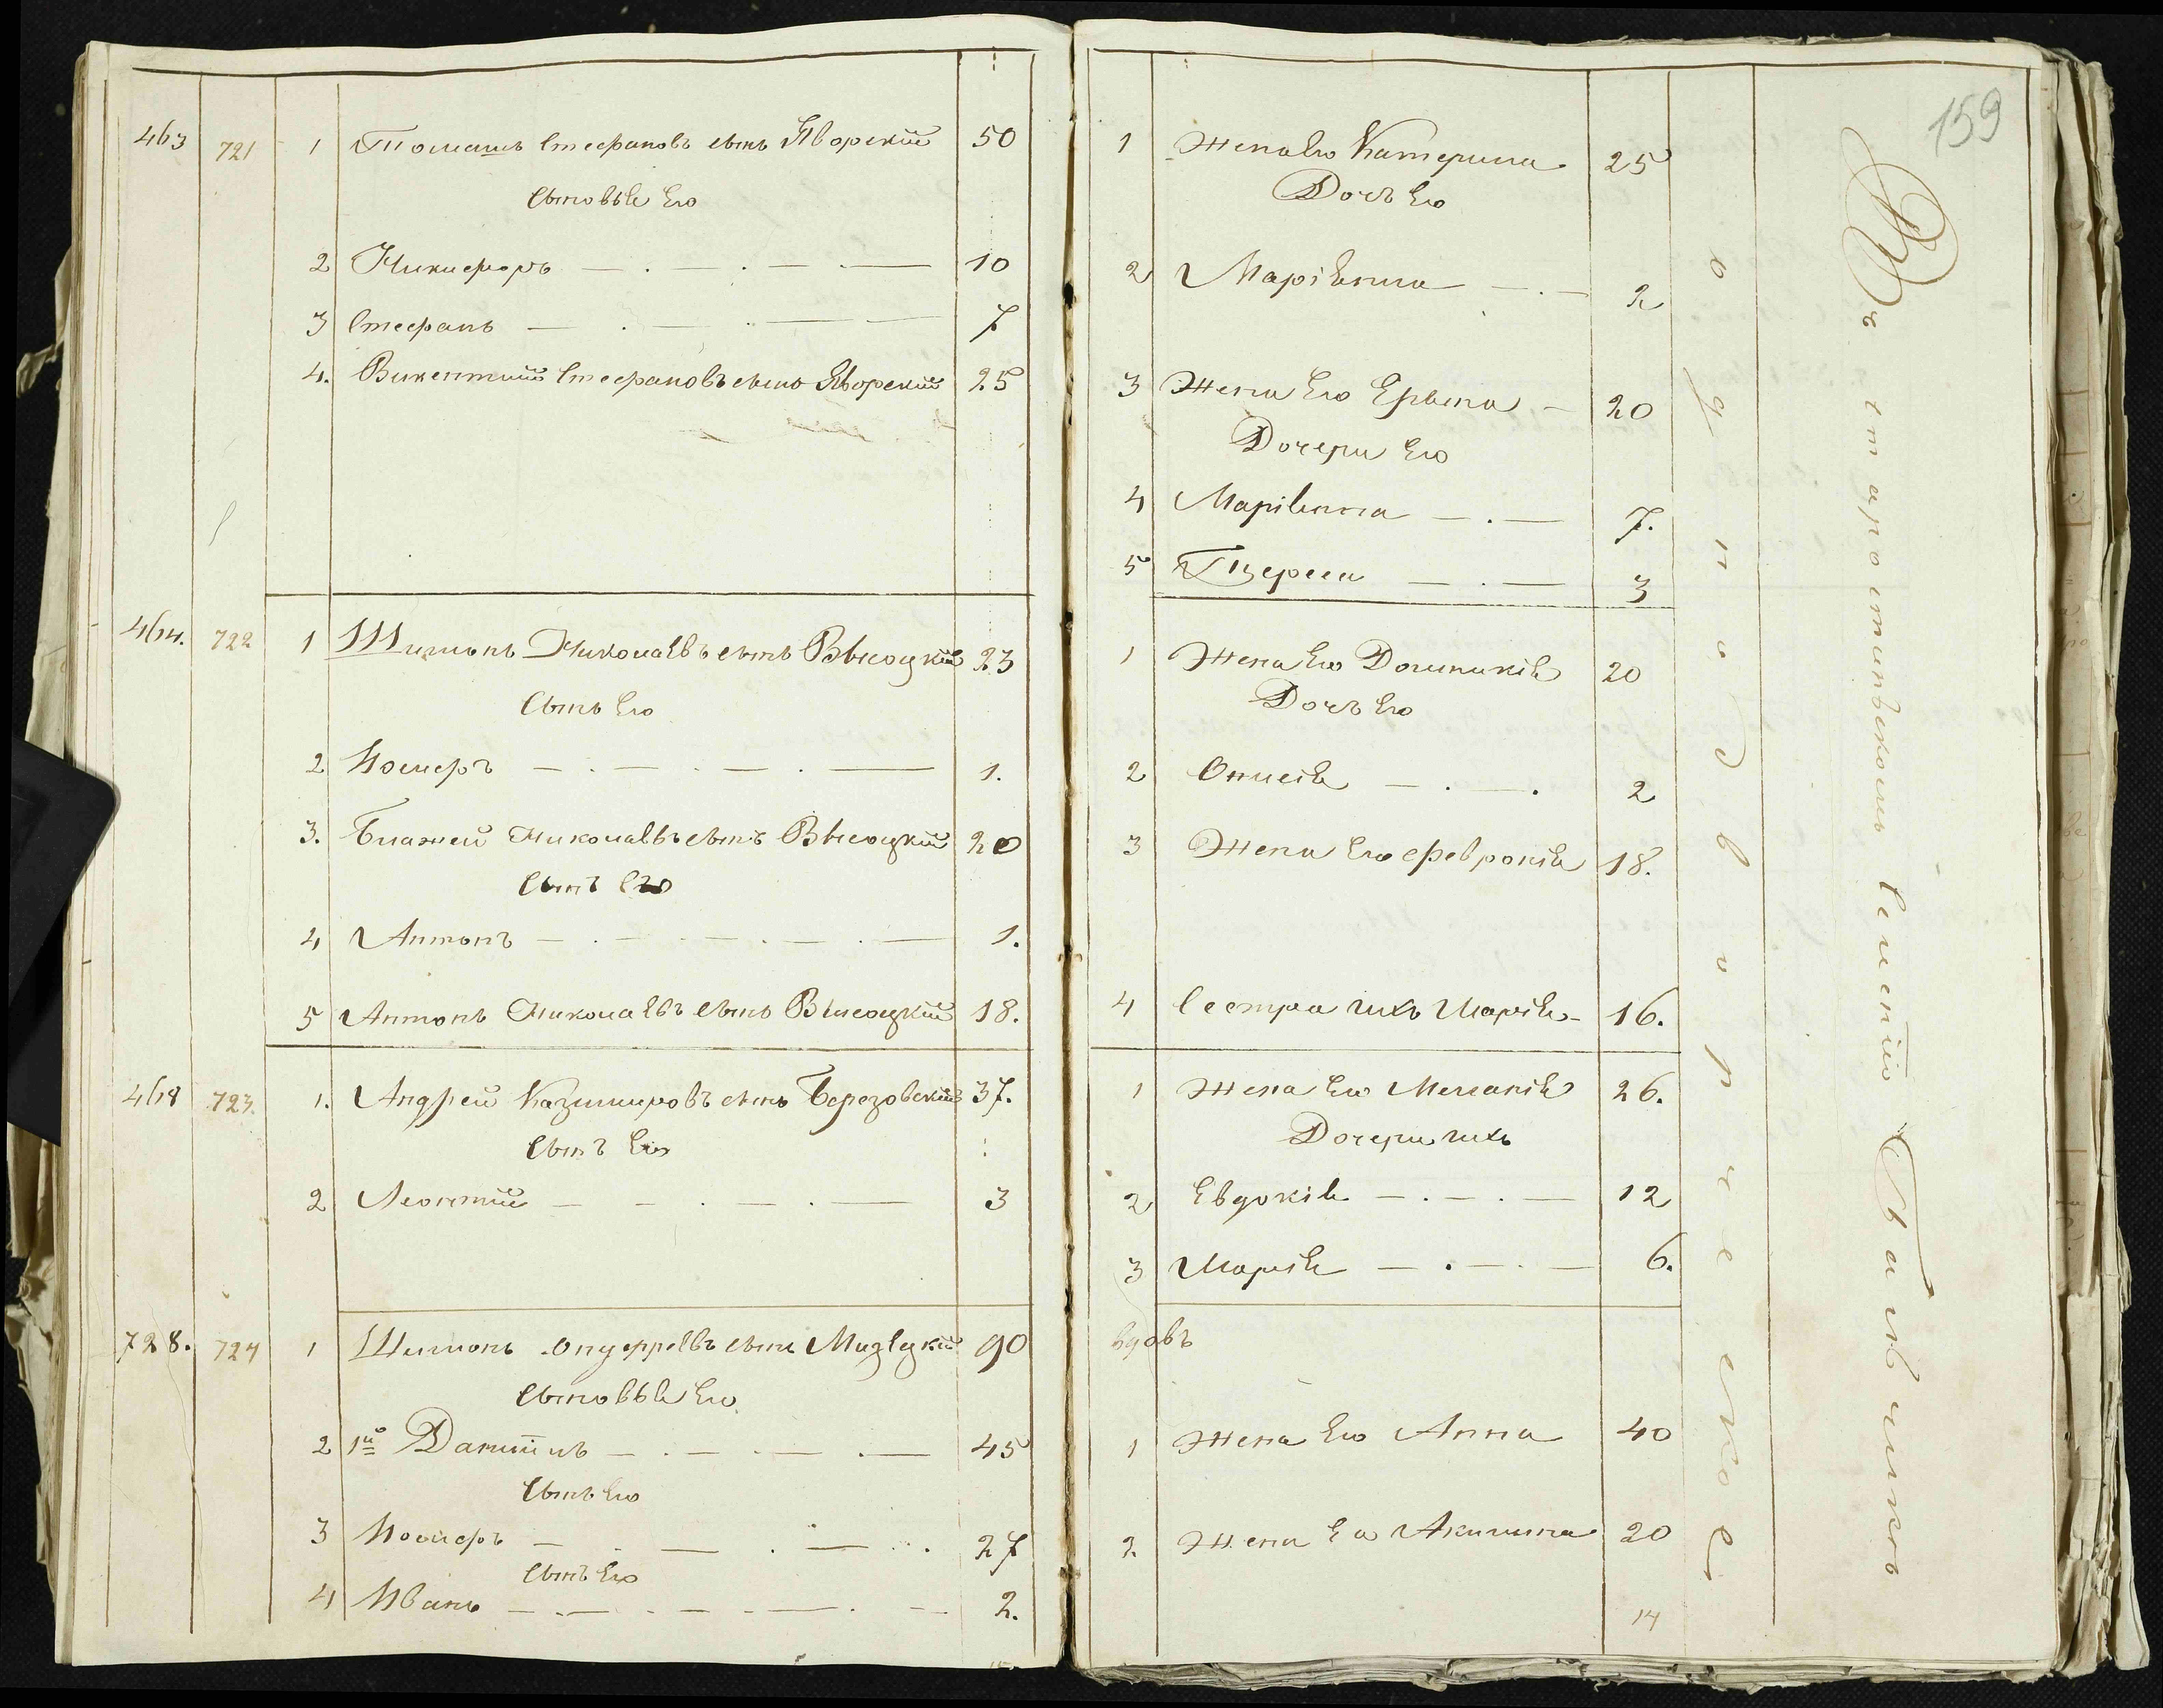 463 721 1 Томашъ Стефановъ сынъ Яворскій 50
Сыновья Его
2 Никифоръ 10
3 Стефанъ 7
4. Викентий Стефановъ сынъ Яворский 25
464. 722 1 Шимонъ Николаевъ сынъ Высоцкий 23
Сынъ Его
2 Иосифъ 1.
3. Блажей Николаевъ сынъ Высоцкий 20
Сынъ Его
4 Антонъ 1.
5 Антонъ Николаевъ сынъ Высоцкий 18.
468 723. 1. Андрей Казимировъ сынъ Березовский 37.
Сынъ Его
2 Леонтий 3
728. 724 1 Шимонъ сынъ 90
Сыновья Его
2 1й Даниилъ 45
Сынъ Его
3 Иосифъ 27
Сынъ Его
4 Иванъ 2.
159
1 Жена Его Катерина 25
Дочъ Его
2 Маріянна 2
3 Жена Его 20
Дочери Его
4 Маріянна 7.
5 Тереса 3
1 Жена Его Доминикія 20
Дочъ Его
2 Онисія 2
3 Жена Его Февронія 18.
4 Сестра ихъ Марія 16.
1 Жена Его Меланія 26.
Дочери ихъ
2 Евдокія 12
3 Марія 6.
вдовъ
1 Жена Его Анна 40
2. Жена Его Акилина 20
14
однодворческое
Въ старостинскомъ селеніи